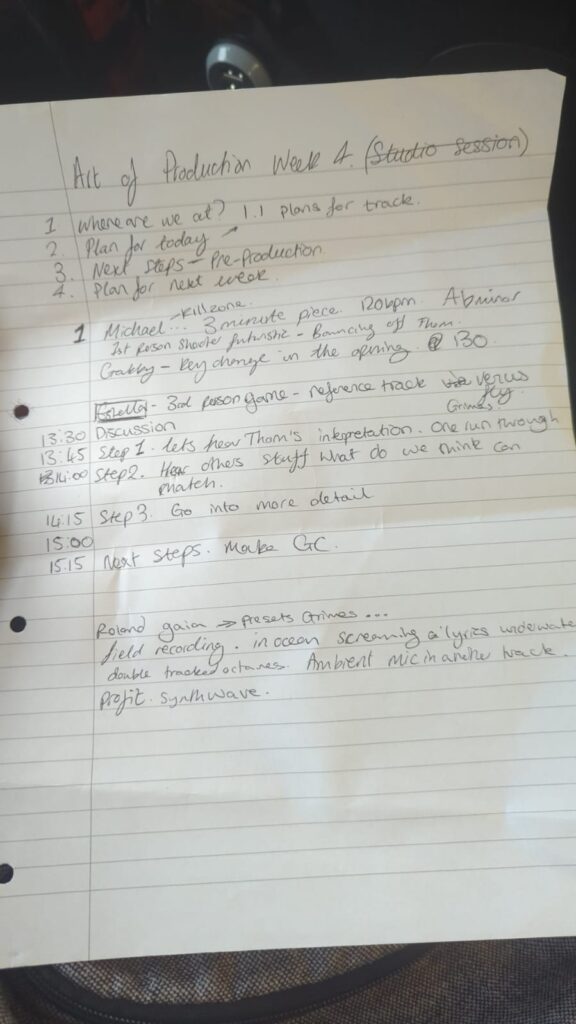 Art of Production Week 4. (Studio Session)
1 Where are we at? 1.1 plans for track.
2 Plan for today
3. Next Steps - Pre-Production
4. Plan for next week.
Killzone.
1 Michael... 3 minute piece. 120bpm. Abminor
1st person shooter futuristic - Bouncing off Thom.
Gabby - Key change in the opening. @ 130
3rd person game - reference track versus
fly
Grimes.
13:30 Discussion
13:45 Step 1. lets hear Thom's intepretation. One run through
14:00 Step 2. Hear others stuff what do we think can
match.
14:15 Step 3. Go into more detail
15:00
15:15 Next steps. Make GC.
Roland gaia → presets Grimes...
field recording. in ocean screaming lyrics underwater
double tracked octaves. Ambient mic in another track.
profit. Synthwave.